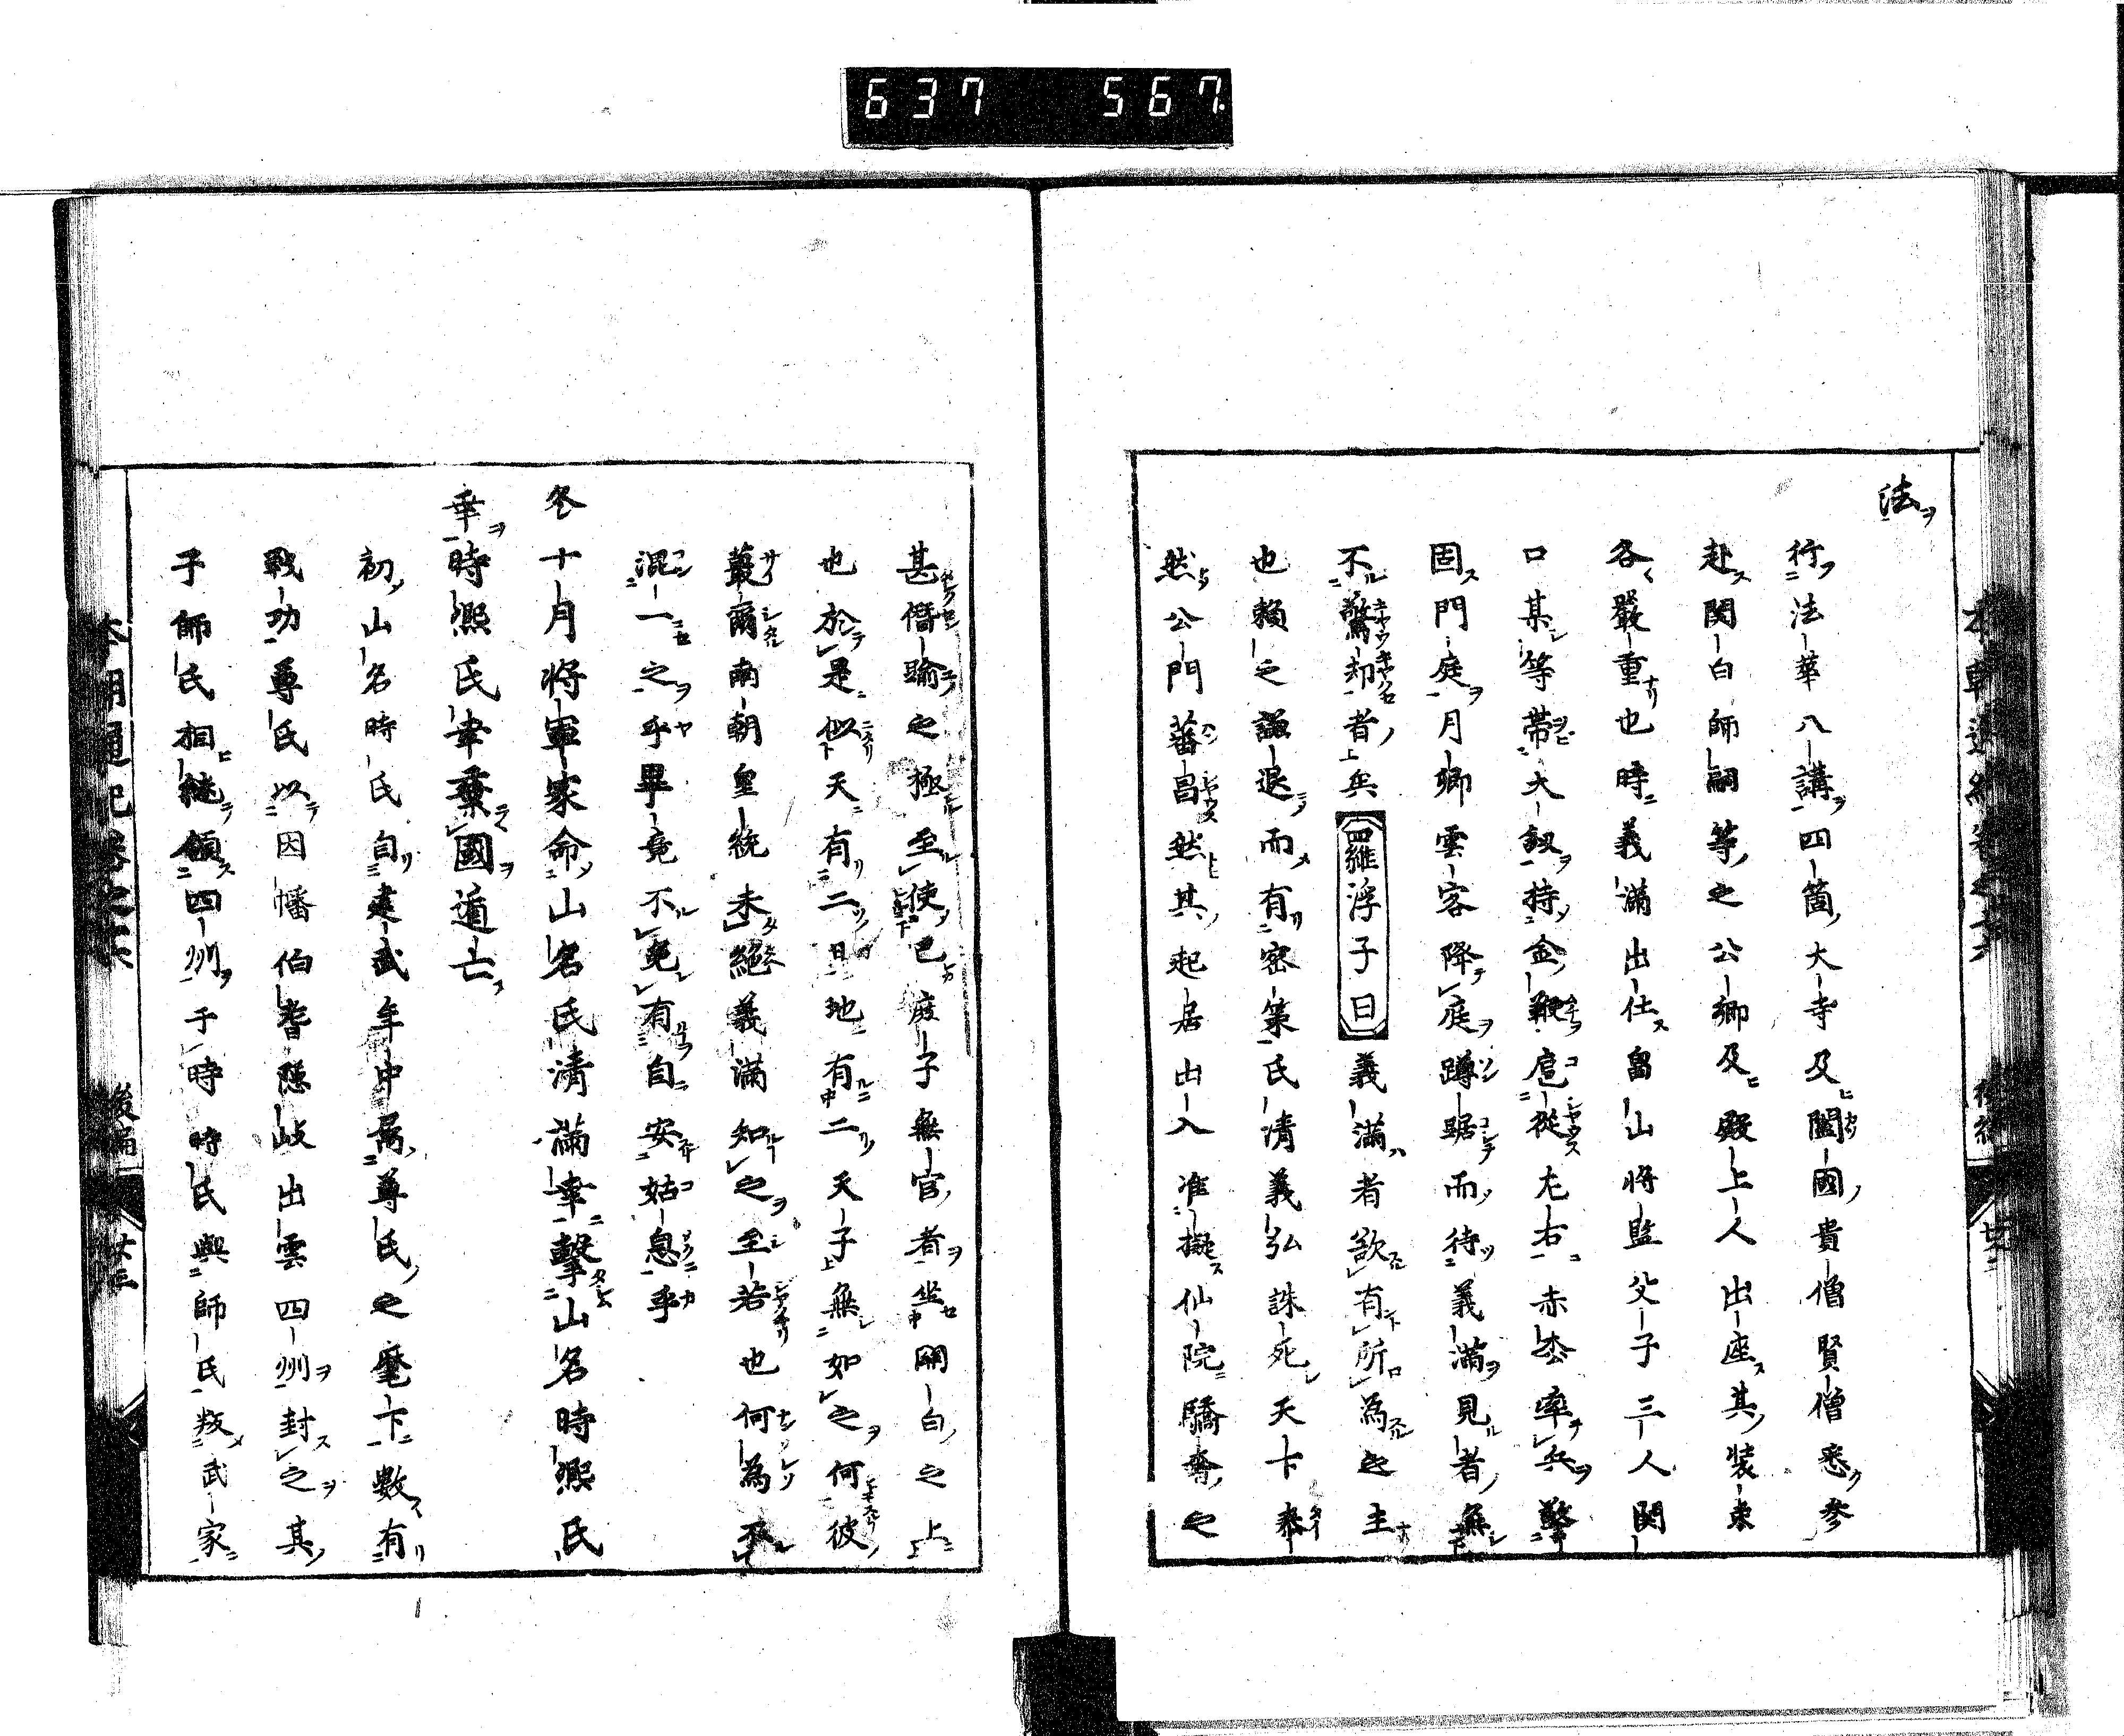 637 567
法
行法華八講四箇大寺及闔國貴僧賢僧悉參
赴関白師嗣等之公卿及殿上人出座其装束
各嚴重也時義滿出仕畠山將監父子三人関
口某等帯大釼持金鞭扈從左右赤松率兵警
固門庭月卿雲客降庭蹲踞而待義滿見者無
不驚却者矣羅浮子曰義滿者欲有所為之主
也頼之謙退而有密策氏清義弘誅死天下泰
然公門蕃昌然其起居出入准擬仙院驕奢之
甚僭踰之極至使己庶子無官者坐関白之上
也於是似天有二日地有二天子無如之何彼
蕞爾南朝皇統未絕義滿知之至若也何為不
混一之乎畢竟不免有自安姑息乎
冬十月將軍家命山名氏清滿幸擊山名時熙氏
幸時熙氏幸棄國遁亡
初山名時氏自建武年中屬尊氏之麾下數有
戰功尊氏以因幡伯耆隱岐出雲四州封之其
子師氏相継領四州于時時氏與師氏叛武家
本朝通紀卷之 後編 廿三